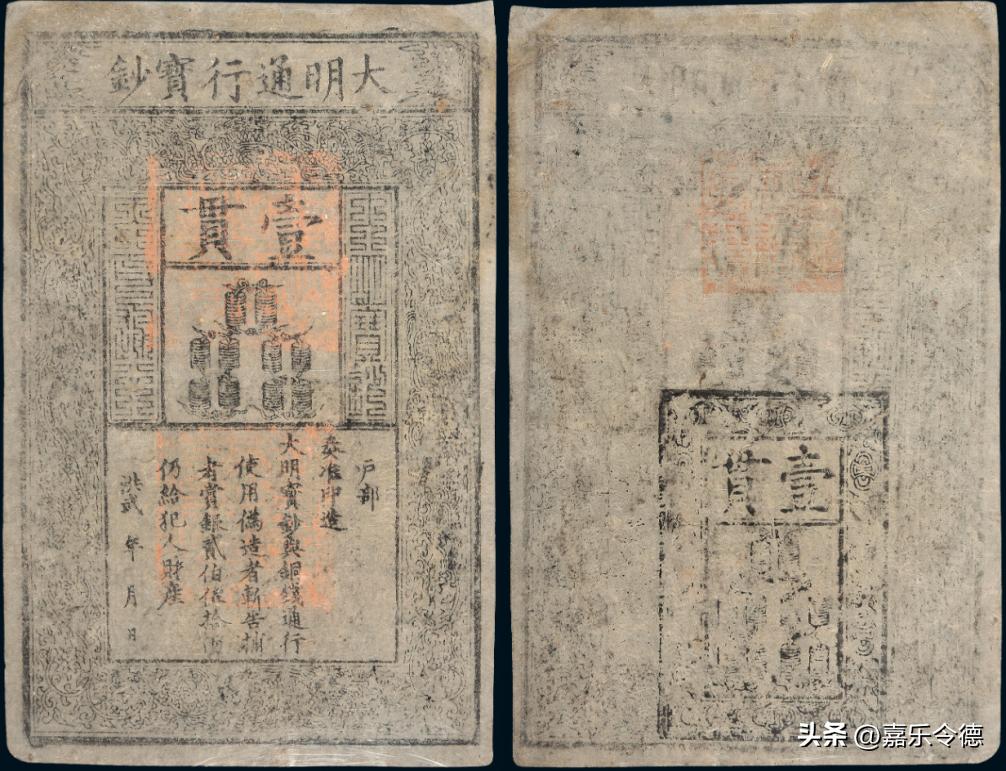 大明通行寶鈔
壹貫
大明寶鈔
天下通行
户部
奏准印造
大明寶鈔與銅錢通行
使用偽造者斬告捕
者賞銀貳伯伍拾兩
仍給犯人財產
洪武 年 月 日
壹貫
头条 @嘉乐令德